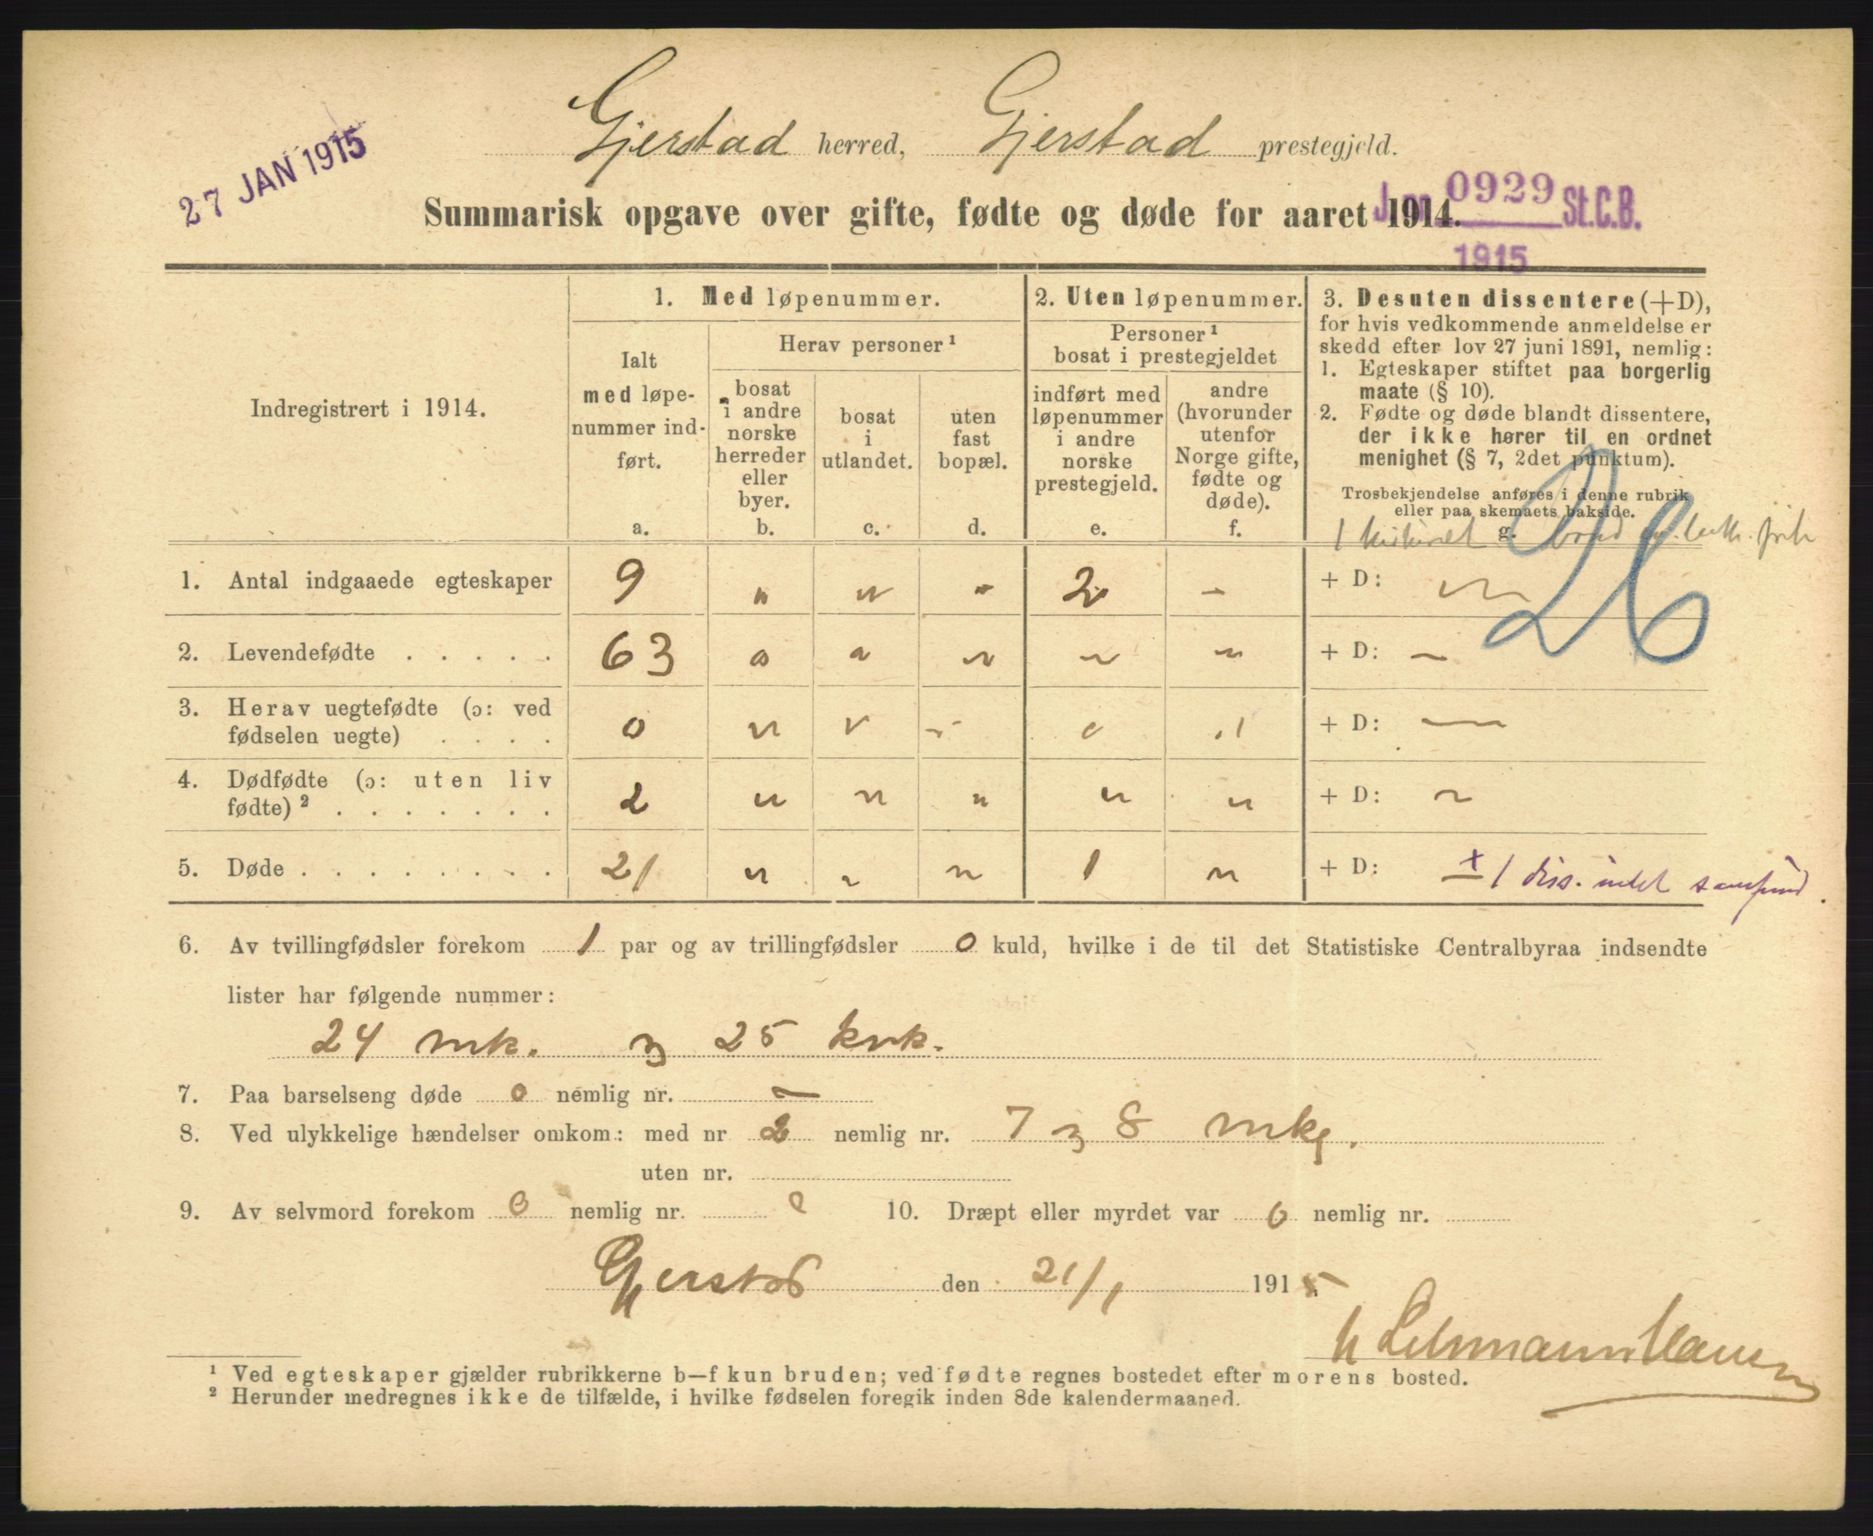 27 JAN 1915
Gjerstad herred, Gjerstad prestegjeld.
J.nr. 0929 St.C.B.
1915
Summarisk opgave over gifte, fødte og døde for aaret 1914.
Indregistrert i 1914.
1. Med løpenummer.
Ialt med løpenummer indført.
a.
Herav personer ¹
bosat i andre norske herreder eller byer.
b.
bosat i utlandet.
c.
uten fast bopæl.
d.
2. Uten løpenummer.
Personer ¹ bosat i prestegjeldet
indført med løpenummer i andre norske prestegjeld.
e.
andre (hvorunder utenfor Norge gifte, fødte og døde).
f.
3. Desuten dissentere (+D),
for hvis vedkommende anmeldelse er
skedd efter lov 27 juni 1891, nemlig:
1. Egteskaper stiftet paa borgerlig
maate (§ 10).
2. Fødte og døde blandt dissentere,
der ikke hører til en ordnet
menighet (§ 7, 2det punktum).
Trosbekjendelse anføres i denne rubrik
eller paa skemaets bakside.
g.
26
1. Antal indgaaede egteskaper 9 " " " 2 - + D: "
2. Levendefødte . . . . . 63 " " " " " + D: -
3. Herav uegtefødte (ɔ: ved
fødselen uegte) . . . . 0 " " " " " + D: -
4. Dødfødte (ɔ: uten liv
fødte) ² . . . . . . . 2 " " " " " + D: "
5. Døde . . . . . . . . . 21 " " " 1 " + D: ± 1 diss. intet samfund.
6. Av tvillingfødsler forekom 1 par og av trillingfødsler 0 kuld, hvilke i de til det Statistiske Centralbyraa indsendte
lister har følgende nummer:
24 mk. og 25 kvk.
7. Paa barselseng døde 0 nemlig nr. -
8. Ved ulykkelige hændelser omkom: med nr 2 nemlig nr. 7 og 8 mkj.
uten nr.
9. Av selvmord forekom 0 nemlig nr. 0 10. Dræpt eller myrdet var 0 nemlig nr.
Gjerstad den 21/1 1915.
Lehmann Hansen
¹ Ved egteskaper gjælder rubrikkerne b—f kun bruden; ved fødte regnes bostedet efter morens bosted.
² Herunder medregnes ikke de tilfælde, i hvilke fødselen foregik inden 8de kalendermaaned.